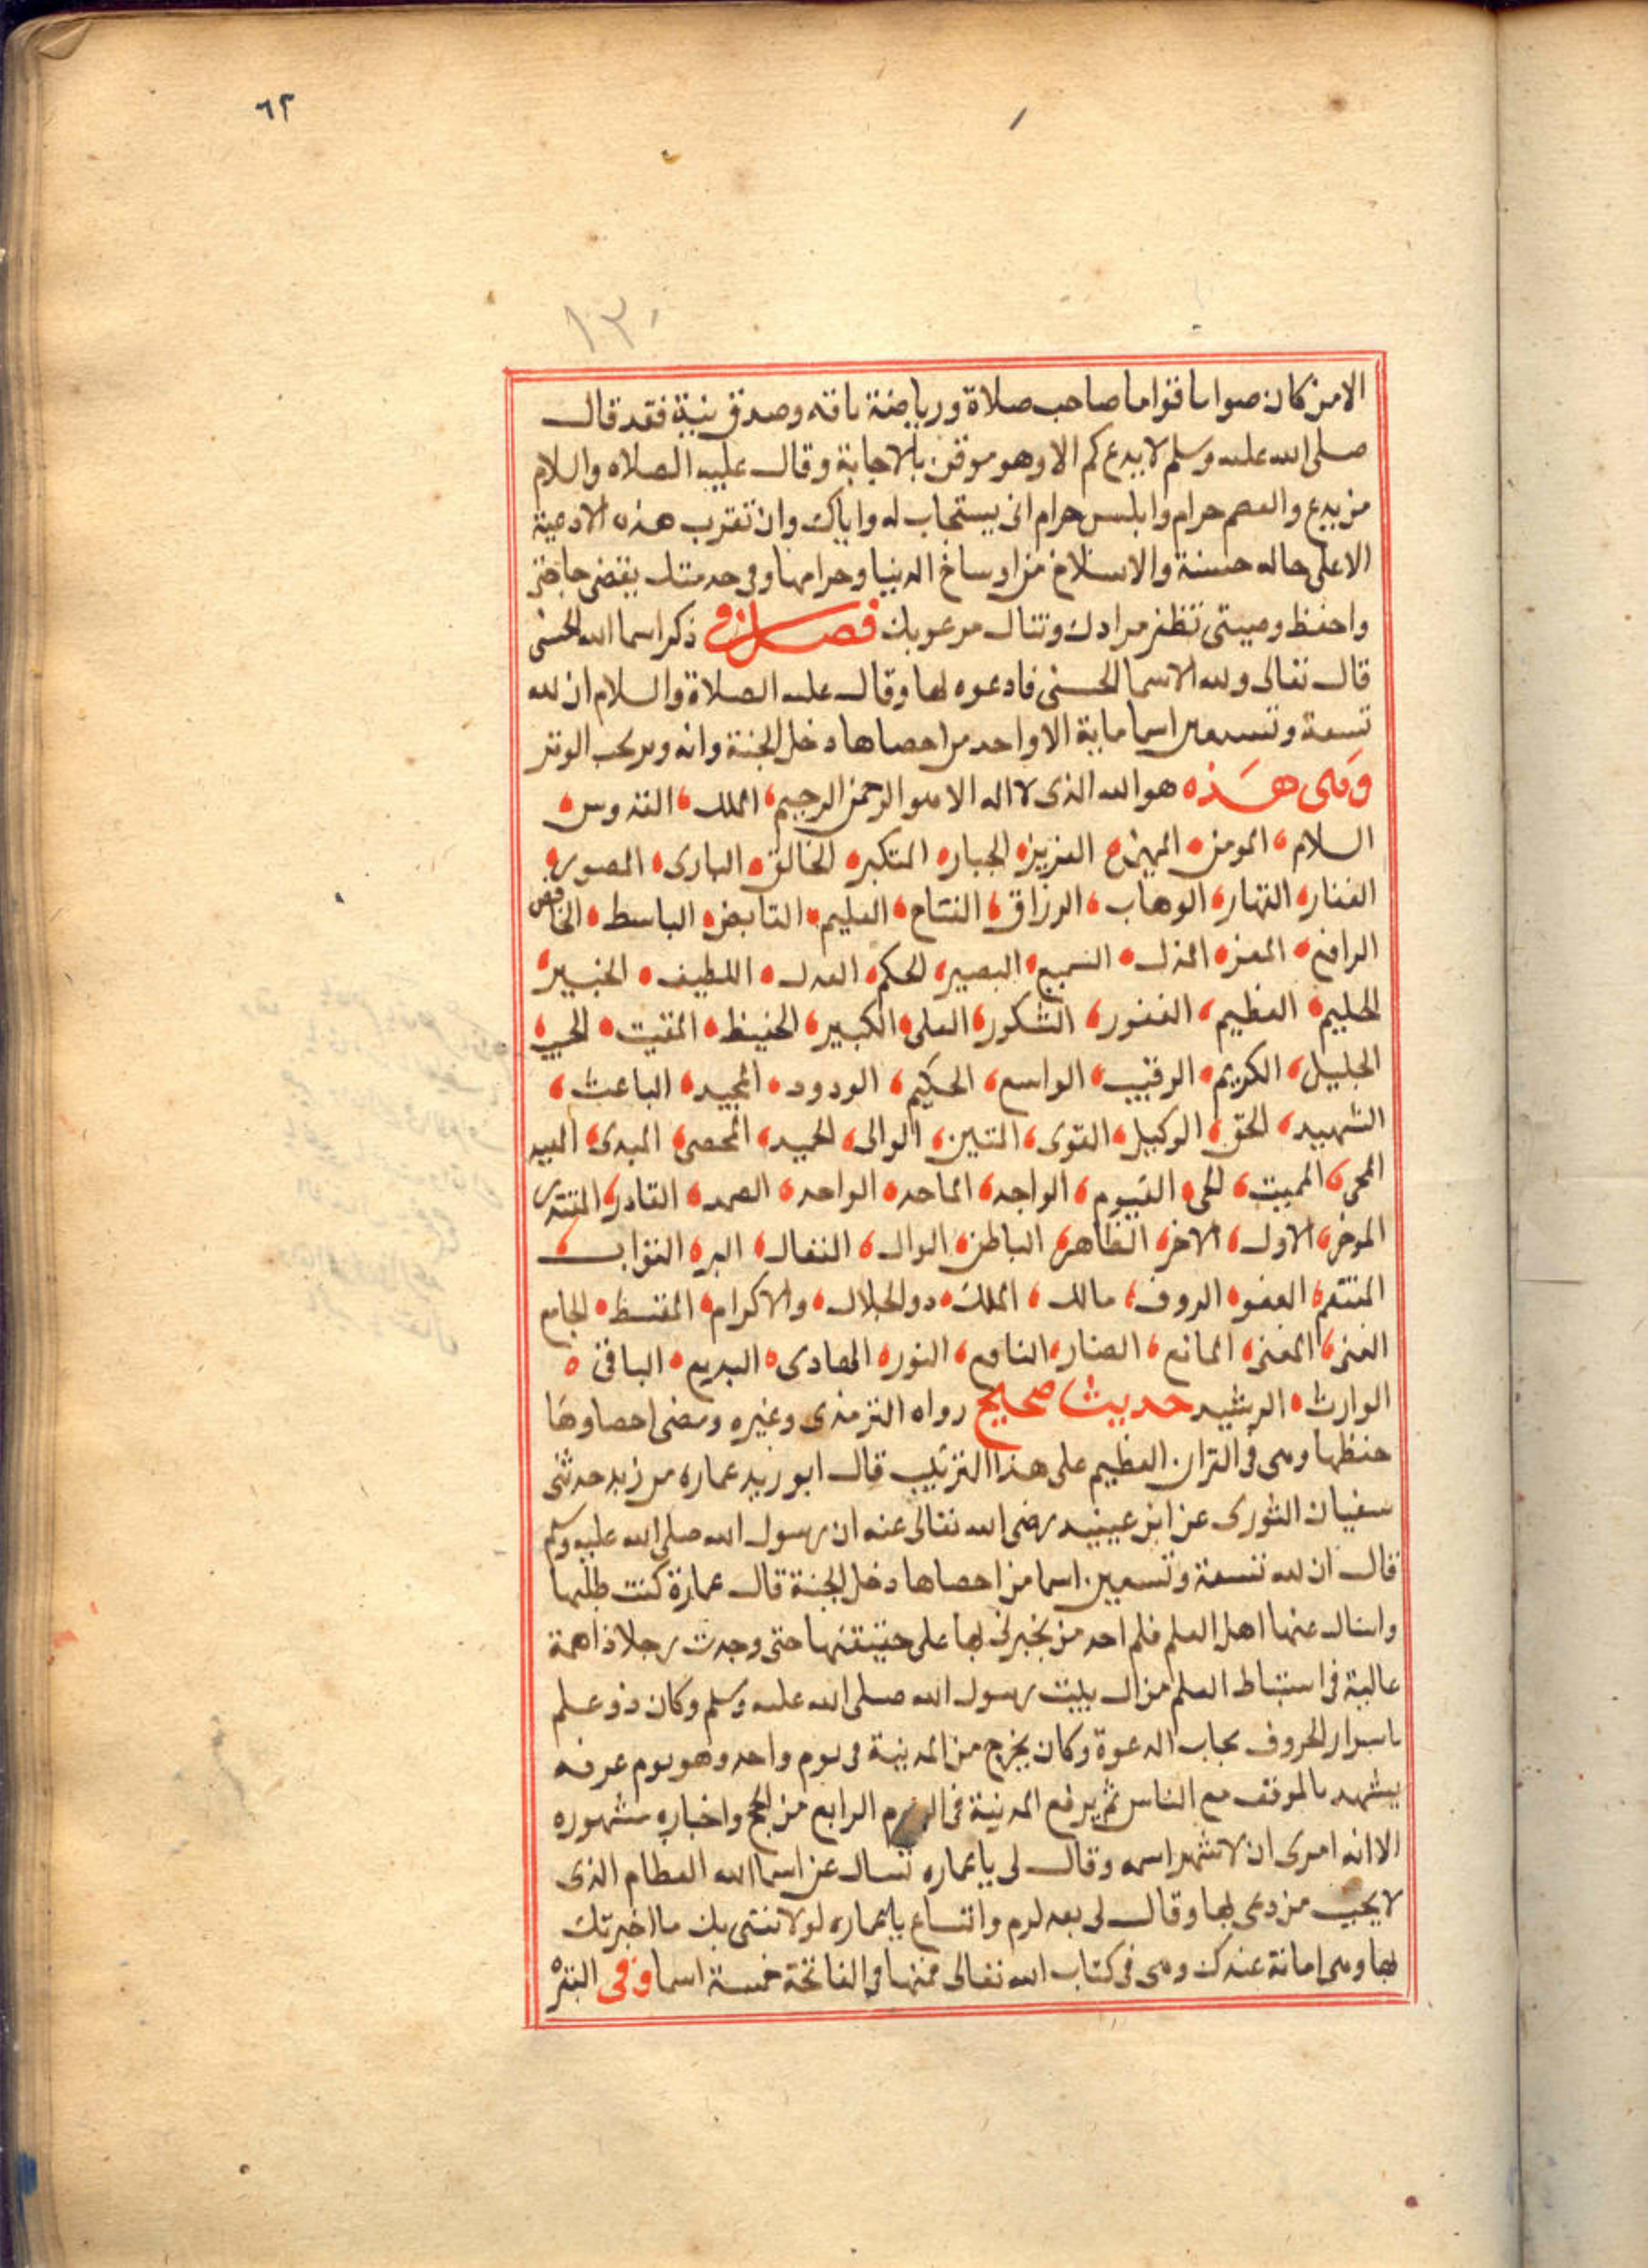 ٦٢
١٣٠
الا من كان صواما قواما صاحب صلاة ورياضة باقه وصدق بنية فقد قال
صلى الله عليه وسلم لا يدع كم الا وهو موقن بالاجابة وقال عليه الصلاه والسلام
من يدع والعصم حرام وابلس حرام انى يستجاب له واياك وان تقرب هذه الادعية
الا على حاله حسنة والانسلاخ من اوساخ الدنيا وحرامها وفى حد متلك يقضى حاجتى
واحفظ وصيتى تظفر مرادك وتنال مرعوبك فصل فى ذكر اسما الله الحسنى
قال تعالى ولله الاسما الحسنى فادعوه بها وقال عليه الصلاة والسلام ان لله
تسعة وتسعين اسما ماية الا واحد من احصاها دخل الجنة وانه وتر يحب الوتر
وهى هذه هو الله الذى لا اله الا هو الرحمن الرحيم الملك القدوس
السلام المومن المهيمن العزيز الجبار المتكبر الخالق البارى المصور
الغفار القهار الوهاب الرزاق الفتاح العليم القابض الباسط الخافض
الرافع المعز المذل السميع البصير الحكم العدل اللطيف الخبير
الحليم العظيم الغفور الشكور العلى الكبير الحفيظ المقيت الحسيب
الجليل الكريم الرقيب الواسع الحكيم الودود المجيد الباعث
الشهيد الحق الوكيل القوى المتين الوالى الحميد المحصى المبدى المعيد
المحي المميت الحى القيوم الواجد الماجد الواحد الصمد القادر المقتدر
الموخر الاول الاخر الظاهر الباطن الوال التعال البر التواب
المنتقم العفو الروف مالك الملك دو الجلال والاكرام المقسط الجامع
الغنى المغنى المانع الضار النافع النور الهادى البديع الباقى
الوارث الرشيد حديث صحيح رواه الترمذى وغيره ومعنى احصاوها
حفظها وهى فى القران العظيم على هذا الترتيب قال ابو زيد عماره من زيد حدثنى
سفيان الثورى عن ابن عيينه رضى الله تعالى عنه ان رسول الله صلى الله عليه وسلم
قال ان لله تسعة وتسعين اسما من احصاها دخل الجنة قال عمارة كنت طلبها
واسال عنها اهل العلم فلم احد من يخبرنى بها على حقيقتها حتى وجدت رجلا ذا همة
عالية فى استنباط العلم من ال بيت رسول الله صلى الله عليه وسلم وكان ذو علم
باسرار الحروف مجاب الدعوة وكان يخرج من المدينة فى يوم واحد وهو يوم عرفه
يشهد بالموقف مع الناس ثم يرفع المدينة فى اليوم الرابع من الحج واخباره مشهوره
الا انه امرى ان لا تشهر اسمه وقال لى يا عماره تسال عن اسما الله العظام الذى
لا يجيب من دعى بها وقال لى بعد لرم وانتساع يا عماره لولا ثقتى بك ما اخبرتك
بها وهى امانة عندك وهى فى كتاب الله تعالى فمنها فى الفاتحة خمسة اسما وفى البقره